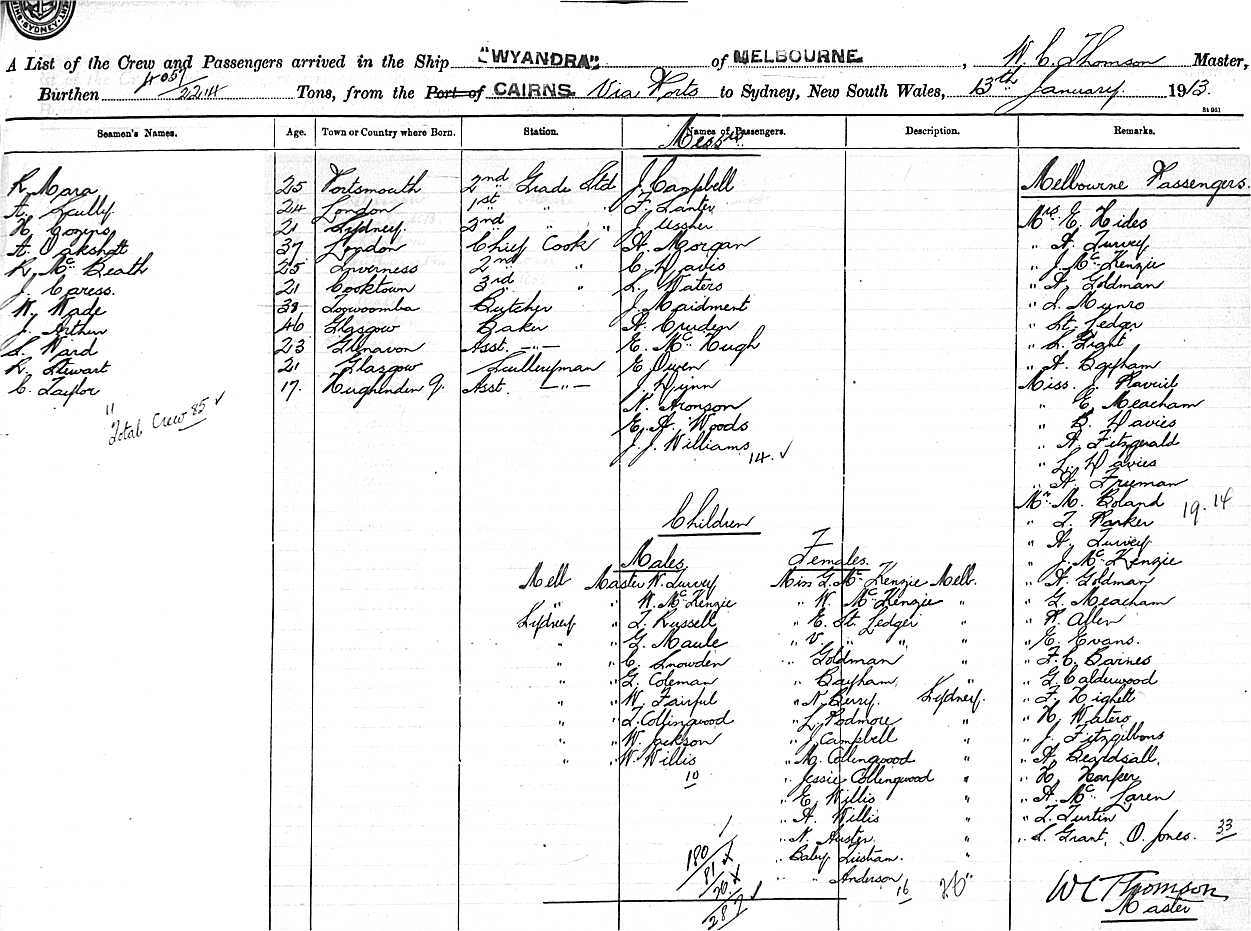 SYDNEY
A List of the Crew and Passengers arrived in the Ship "WYANDRA" of MELBOURNE, W. C. Thomson Master,
Burthen 4058/2214 Tons, from the Port of CAIRNS. Via Ports to Sydney, New South Wales, 13th January. 1913.
Seamen's Names. Age. Town or Country where Born. Station. Names of Passengers. Description. Remarks.
Messrs
R. Mara 25 Portsmouth 2nd Grade Std J. Campbell Melbourne Passengers.
A. Scully 24 London 1st " " F. Lanter
21 Sydney. 2nd " " J. Mrs. E. Hides
A. 37 London Chief Cook A. Morgan " A. Turvey
R. McBeath 25 Inverness 2nd " C. Davis " J. McKenzie
J. Caress. 21 Cooktown 3rd " L. Waters " A. Goldman
W. Wade 38 Toowoomba Butcher J. Maidment " L. Munro
J. Arthur 46 Glasgow Baker A. Cruden " St. Ledger
S. Ward 23 Asst. — " — E. McHugh " L. Light
R. Stewart 21 Glasgow Sculleryman E. Owen " A. Bayham
C. Taylor 17. Hughenden Q. Asst. — " — J. Miss. J.
11 N. Aronson " E. Meacham
Total Crew 85 ✓ E. A. Woods " B. Davies
J. J. Williams 14. ✓ " A. Fitzgerald
" L. Davies
" A. Freeman
Children Mr. M. Boland 19. 14
" T. Parker
Males Females. " A. Turvey
" J. McKenzie
Melb Master W. Turvey Miss G. McKenzie Melb. " A. Goldman
" " W. McKenzie " W. McKenzie " " G. Meacham
Sydney " T. Russell " E. St. Ledger " " A. Allen
" " G. Maule " V. " " " " E. Evans.
" " C. Snowden " Goldman " " F. C. Barnes
" " G. Coleman " Bayham " " G. Calderwood
" " W. Fairful " N. Berry. Sydney. " F. Highett
" " T. Collingwood " L. Podmore " " H. Waters
" " W. Jackson " J. Campbell " " J. Fitzgibbons
" " W. Willis " M. Collingwood " " A. Beardsall.
10 " Jessie Collingwood " " H. Harper
" E. Willis " " A. McLaren
" A. Willis " " T. Turtin
" N. Auster. " " L. Grant, O. Jones. 33
180 " Baby "
81 " " Anderson 16 26"
W C Thomson
Master